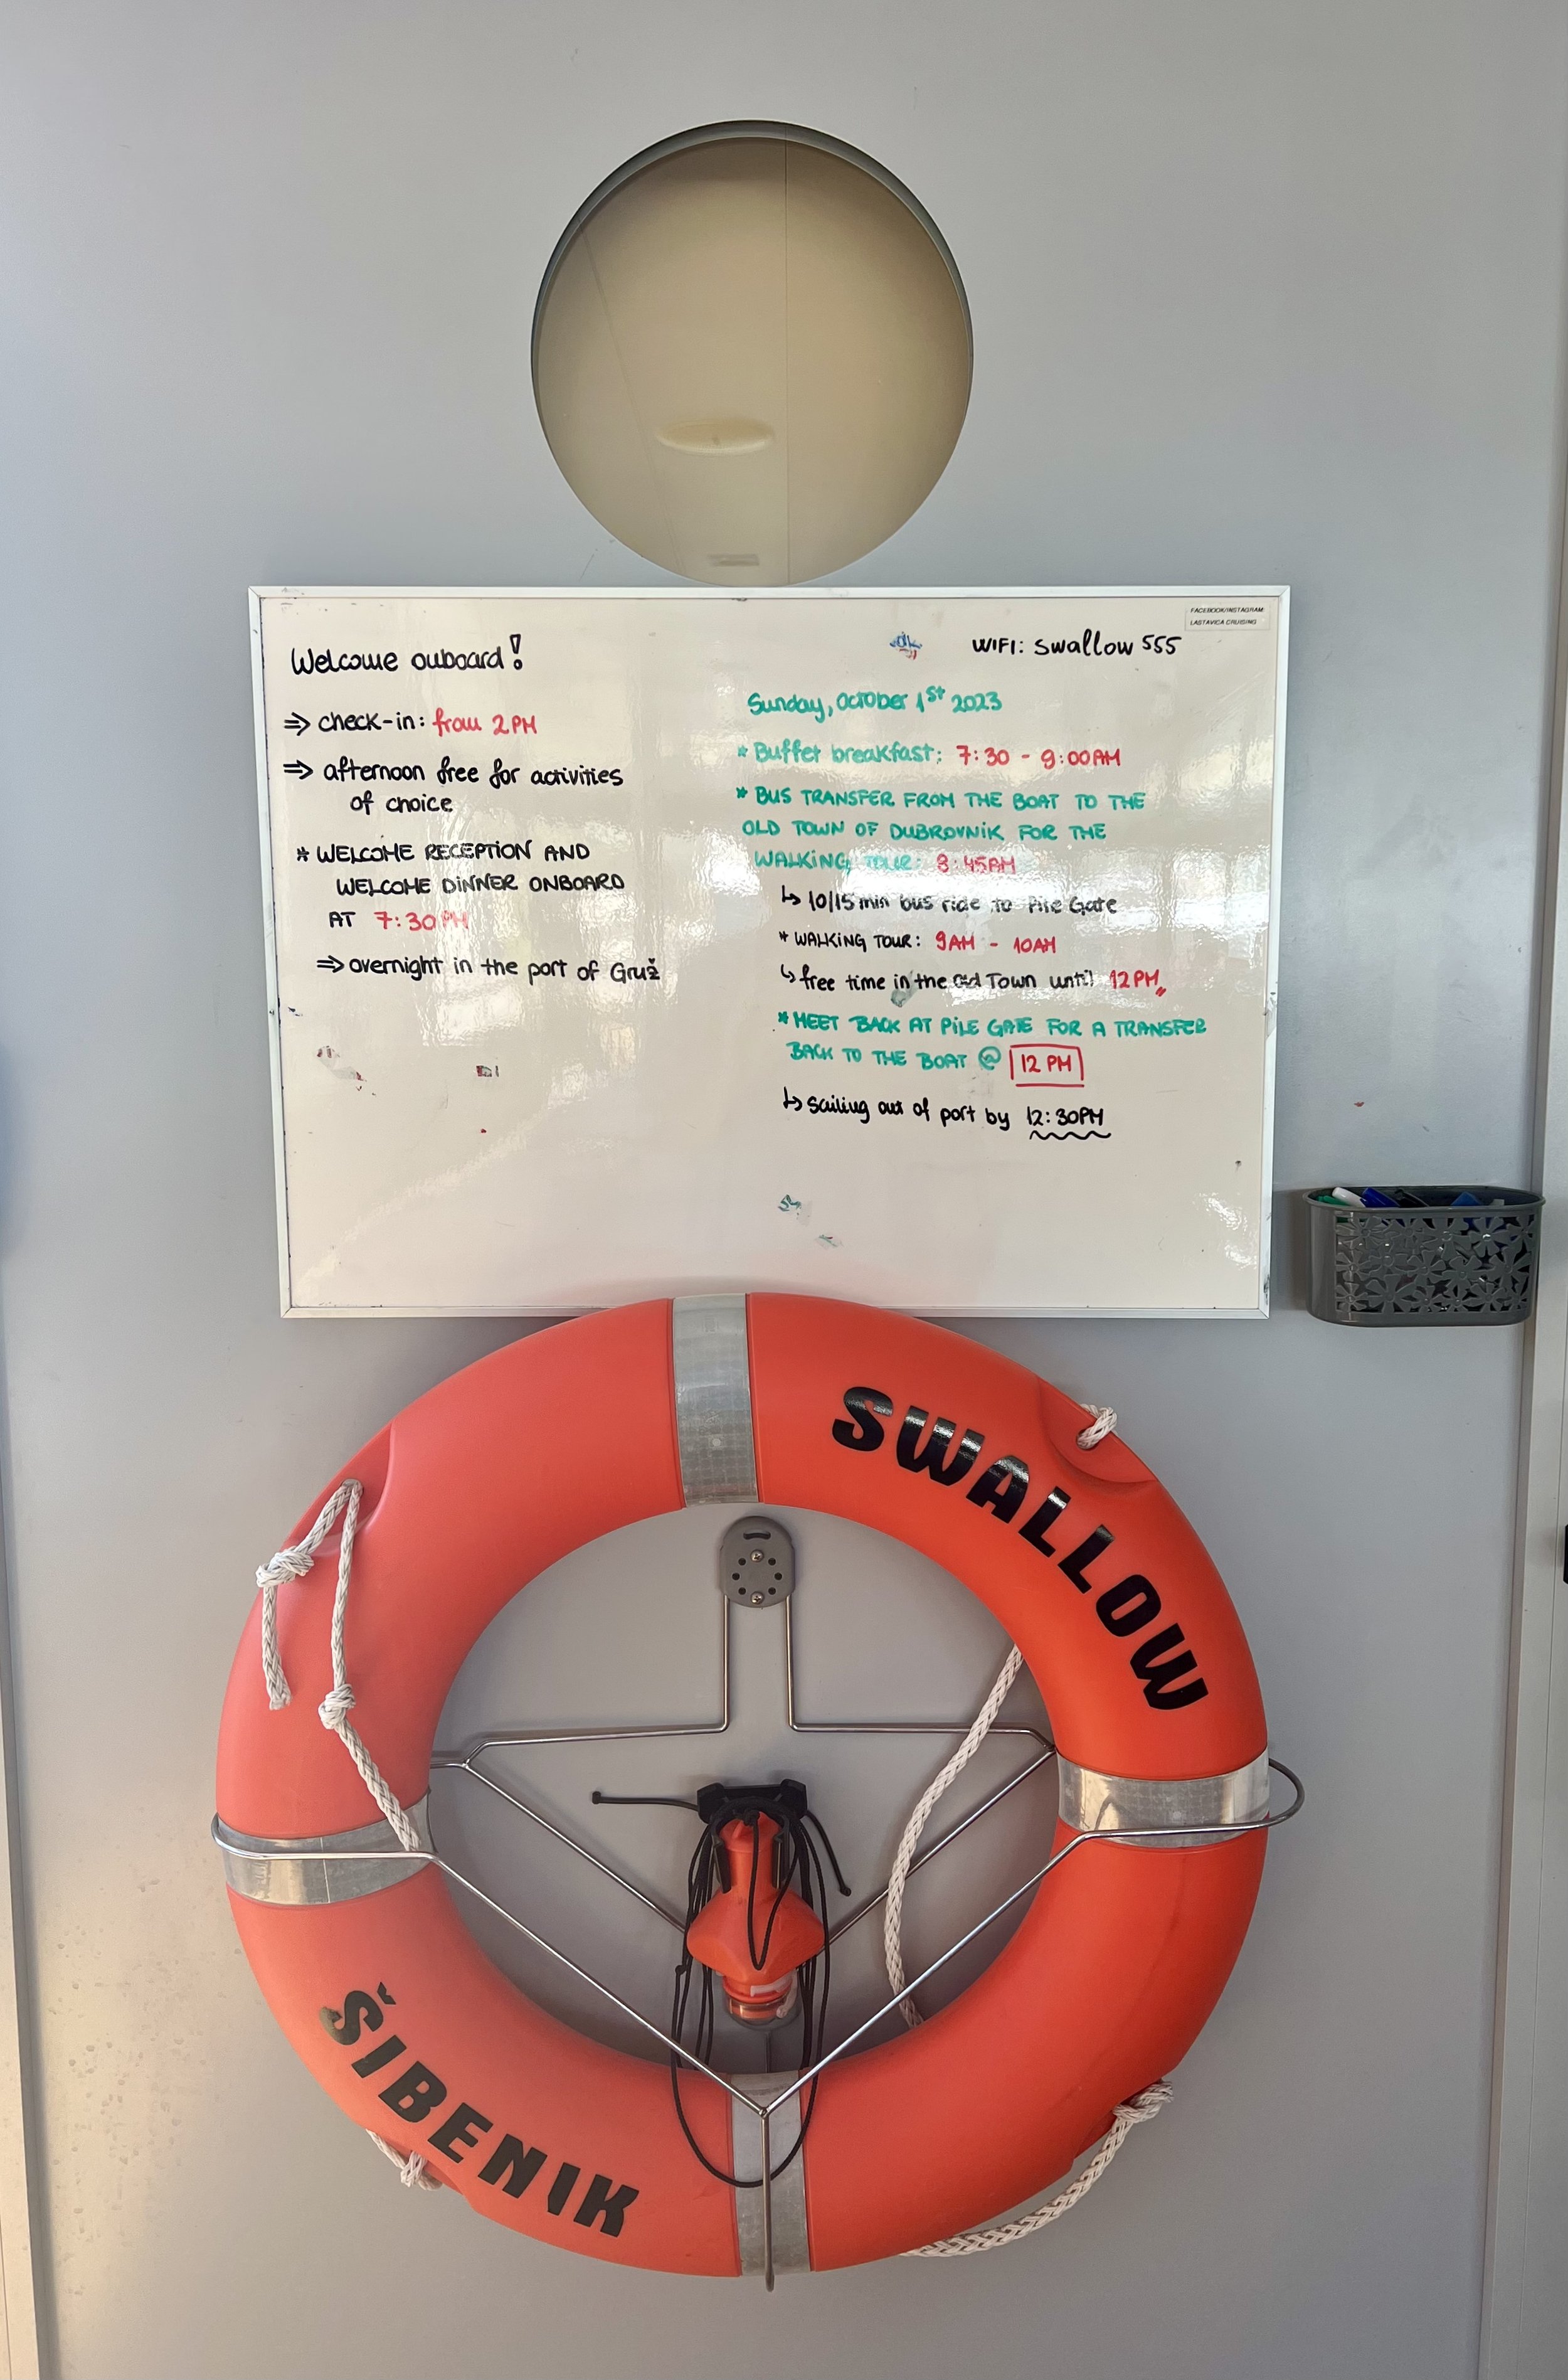 Welcome onboard!
⇒ check-in: from 2 PM
⇒ afternoon free for activities
of choice
* WELCOME RECEPTION AND
WELCOME DINNER ONBOARD
AT 7:30 PM
⇒ overnight in the port of Gruž
FACEBOOK/INSTAGRAM:
LASTAVICA CRUISING
WIFI: swallow 555
Sunday, October 1st 2023
* Buffet breakfast: 7:30 - 9:00AM
* BUS TRANSFER FROM THE BOAT TO THE
OLD TOWN OF DUBROVNIK FOR THE
WALKING TOUR: 8:45AM
↳ 10/15 min bus ride to Pile Gate
* WALKING TOUR: 9AM - 10AM
↳ free time in the Old Town until 12PM
* MEET BACK AT PILE GATE FOR A TRANSFER
BACK TO THE BOAT @ 12 PM
↳ sailing out of port by 12:30PM
SWALLOW
ŠIBENIK